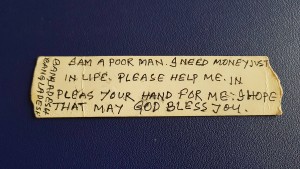 I AM A POOR MAN. I NEED MONEY JUST
IN LIFE. PLEASE HELP ME. IN
PLEAS YOUR HAND FOR ME. I HOPE
THAT MAY GOD BLESS YOU.
BANGLADESH